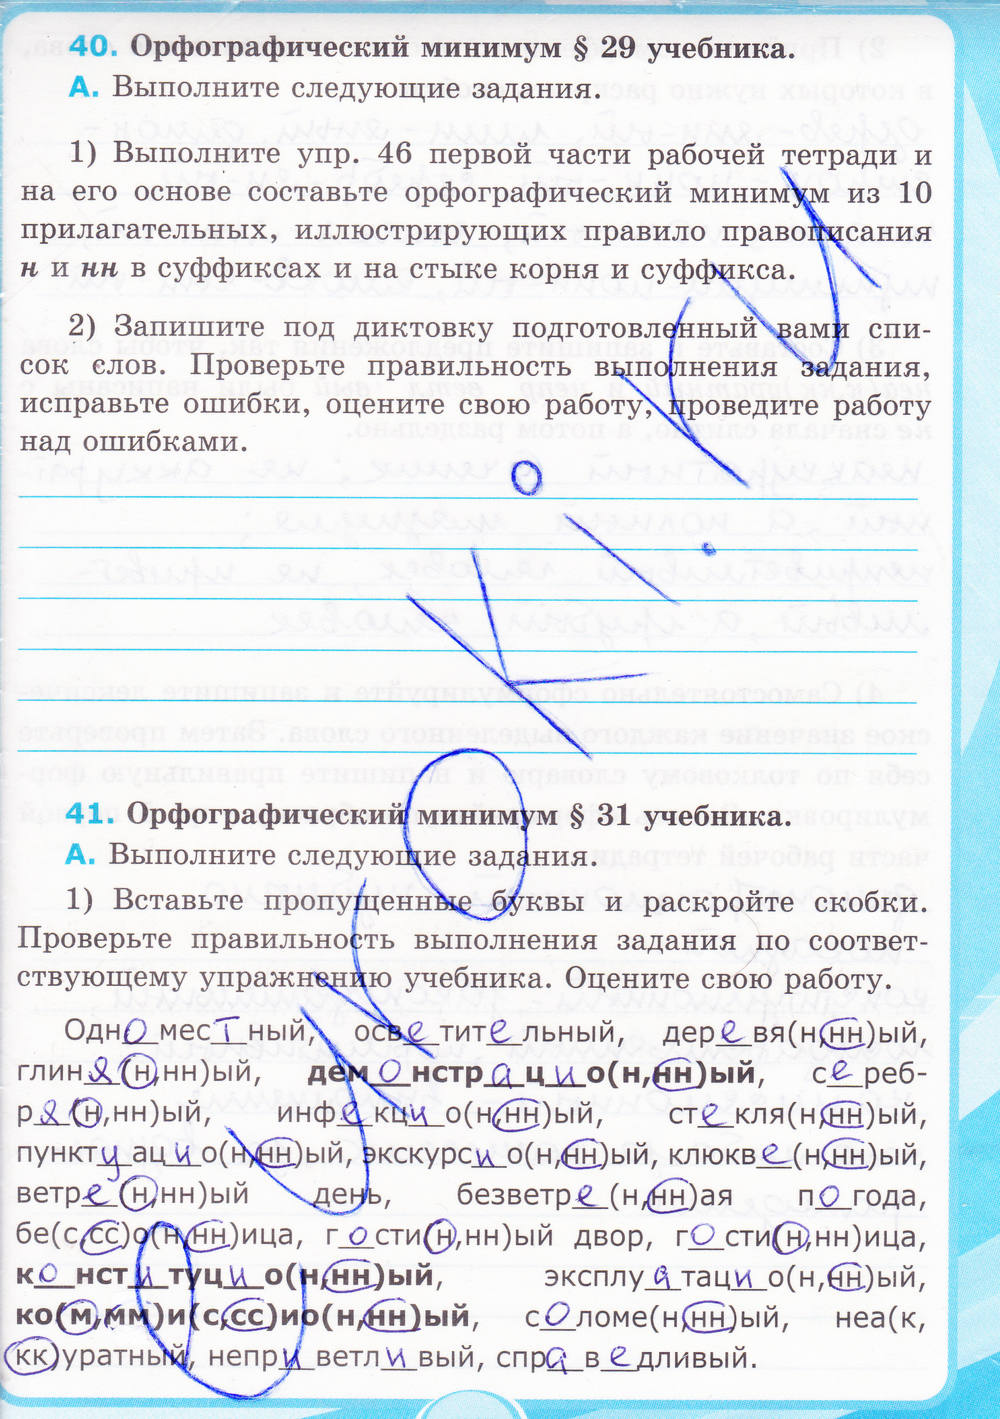 40. Орфографический минимум § 29 учебника.
А. Выполните следующие задания.
1) Выполните упр. 46 первой части рабочей тетради и
на его основе составьте орфографический минимум из 10
прилагательных, иллюстрирующих правило правописания
н и нн в суффиксах и на стыке корня и суффикса.
2) Запишите под диктовку подготовленный вами спи-
сок слов. Проверьте правильность выполнения задания,
исправьте ошибки, оцените свою работу, проведите работу
над ошибками.
41. Орфографический минимум § 31 учебника.
А. Выполните следующие задания.
1) Вставьте пропущенные буквы и раскройте скобки.
Проверьте правильность выполнения задания по соответ-
ствующему упражнению учебника. Оцените свою работу.
Одно мест ный, осветите льный, деревя(н,нн)ый,
глиня(н,нн)ый, демонстрацио(н,нн)ый, сереб-
ря(н,нн)ый, инфекцио(н,нн)ый, стекля(н,нн)ый,
пунктуацио(н,нн)ый, экскурсио(н,нн)ый, клюкве(н,нн)ый,
ветре(н,нн)ый день, безветре(н,нн)ая погода,
бе(с,сс)о(н,нн)ица, гости(н,нн)ый двор, гости(н,нн)ица,
конституцио(н,нн)ый, эксплуатацио(н,нн)ый,
ко(м,мм)и(с,сс)ио(н,нн)ый, соломе(н,нн)ый, неа(к,
кк)уратный, неприветливый, справедливый.